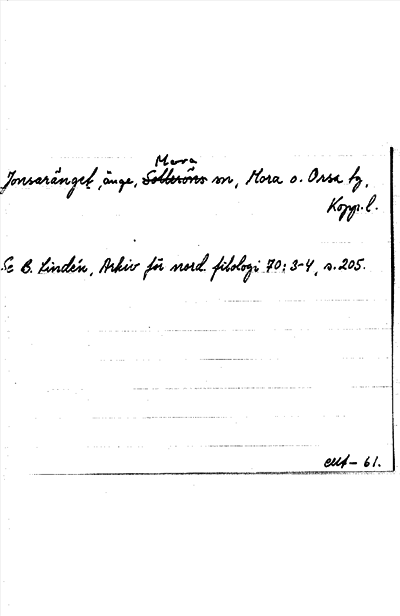 Mora
Jonsaränget, änge, Solleröns sn, Mora o. Orsa tg,
Kopp. l.
Se B. Lindén, Arkiv för nord. filologi 70: 3-4, s. 205.
61.